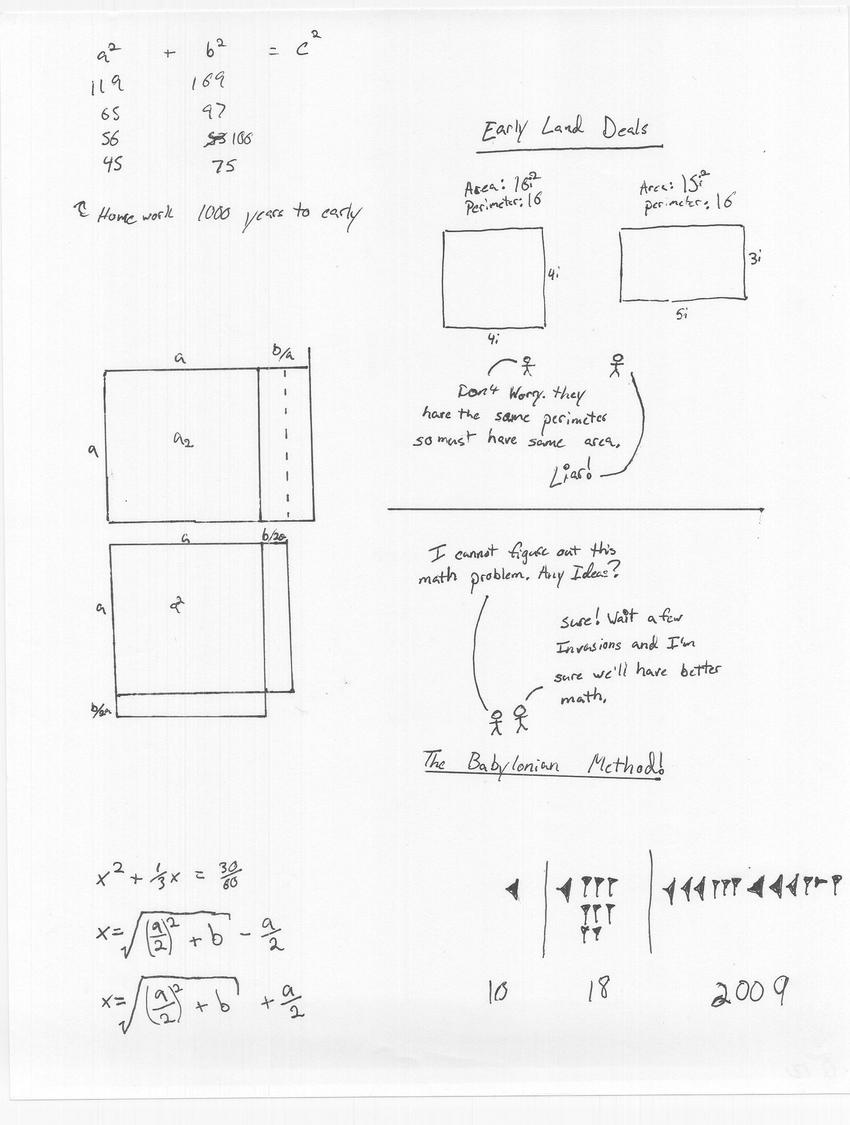 a² + b² = c²
119 169
65 97
56 106
45 75
Homework 1000 years to early
Early Land Deals
Area: 16i²
Perimeter: 16
Area: 15i²
perimeter: 16
4i
3i
4i
5i
Don't Worry. they
have the same perimeter
so must have same area.
Liar!
a b/a
a
a₂
a b/2a
a
a²
b/2a
I cannot figure out this
math problem. Any Ideas?
sure! Wait a few
Invasions and I'm
sure we'll have better
math.
The Babylonian Method!
x² + 1/3 x = 30/60
x = √(a/2)² + b - a/2
x = √(a/2)² + b + a/2
10 18 2009